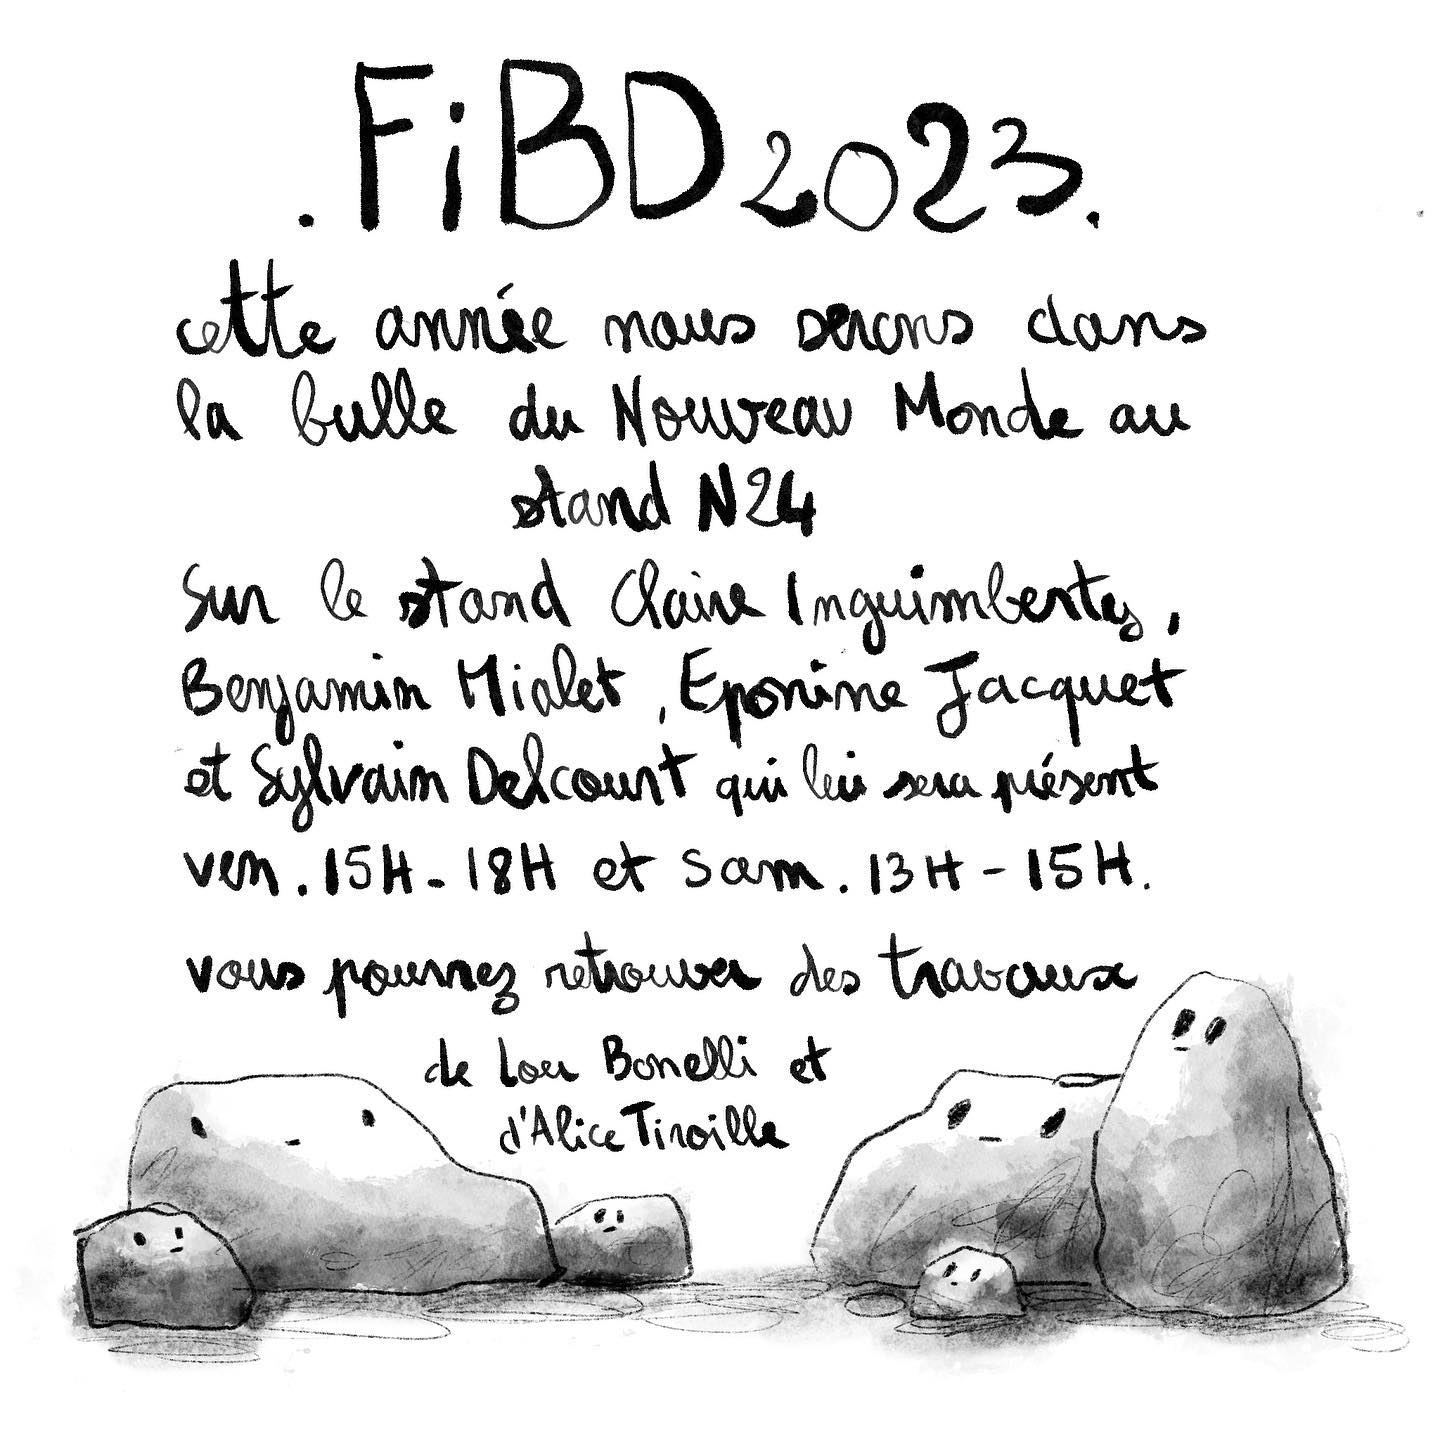 . FiBD 2023.
cette année nous serons dans
la bulle du Nouveau Monde au
stand N24
Sur le stand Claire Inguimberty,
Benjamin Mialet, Eponine Jacquet
et Sylvain Delcourt qui lui sera présent
ven. 15H - 18H et Sam. 13H - 15H.
vous pourrez retrouver des travaux
de Lou Bonelli et
d'Alice Tiroille